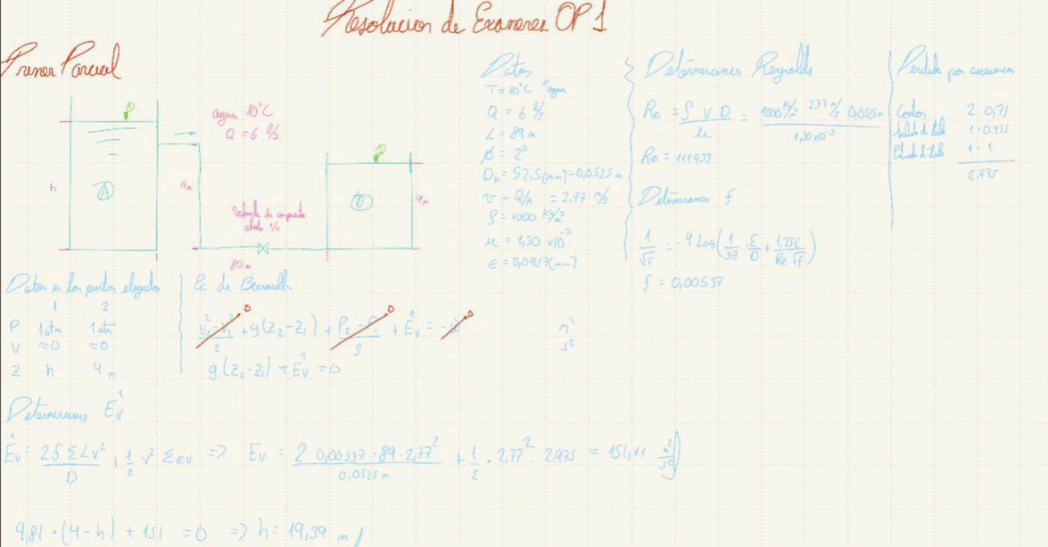 Resolucion de Examenes OP1
Primer Parcial
agua 10°C
Q = 6 l/s
h
A
B
4m
80m
Datos
T = 10°C agua
Q = 6 l/s
L = 89m
Ø = 2"
Dn = 52,5(mm) - 0,0525m
v = Q/A = 2,77 m/s
ρ = 1000 Kg/m³
μ = 1,30 x10⁻³
ε = 0,0457(mm)
Determinamos Reynolds
Re = ρ v D / μ = 1000 Kg/m³ · 2,77 m/s · 0,0525m / 1,30x10⁻³
Re = 111933
Determinamos f
1/√f = -4 Log(1/3,7 · ε/D + 1,256/(Re √f))
f = 0,00537
Perdida por accesorios
Codos 2 · 0,75
Salida d tubo 1 · 0,475
Entrada d tubo 1 · 1
2,975
Datos en los puntos elegidos
1 2
P 1atm 1atm
V ≈0 ≈0
Z h 4m
Ec de Bernoulli
g(z₂-z₁) + Êv = 0
m²/s²
Determinamos Êv
Êv = 2f ΣLv²/D + 1/2 v² Σev => Ev = 2 · 0,00537 · 89 · 2,77²/0,0525m + 1/2 · 2,77² · 2,975 = 151,11 m²/s²
9,81 · (4-h) + 151 = 0 => h = 19,39 m